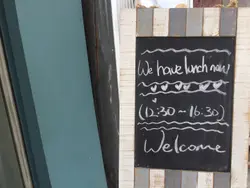 We have lunch now!
(12:30 – 16:30)
Welcome